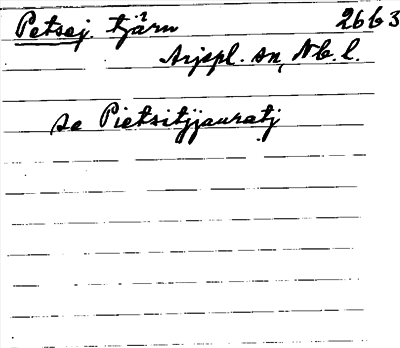 Petsej. tjärn 2663
Arjepl. sn, Nb. l.
se Pietsitjjauratj